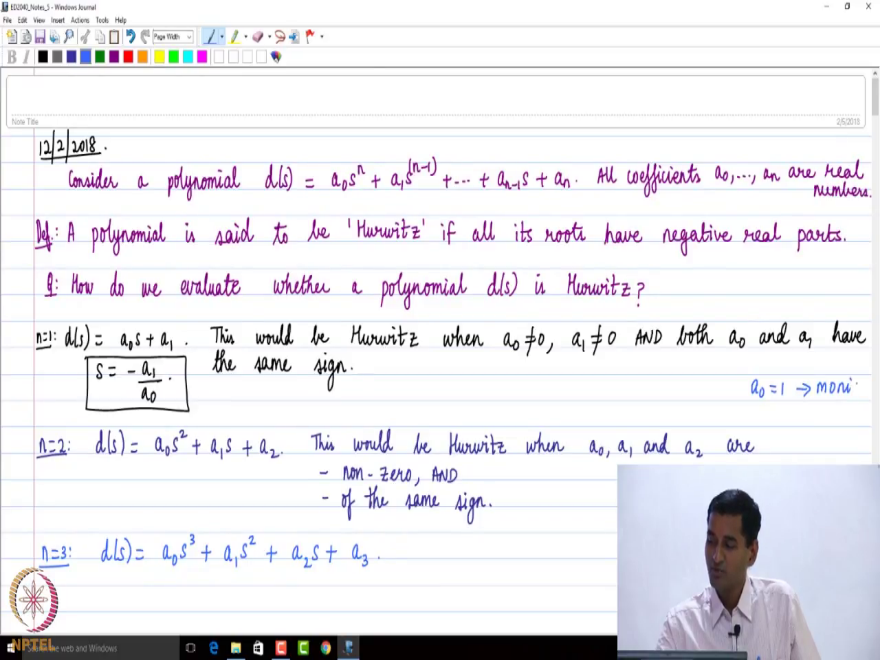 ED2040_Notes_5 - Windows Journal
File Edit View Insert Actions Tools Help
Page Width
B I
Note Title
2/5/2018
12/2/2018.
Consider a polynomial d(s) = a₀sⁿ + a₁s⁽ⁿ⁻¹⁾ + ... + aₙ₋₁s + aₙ. All coefficients a₀,..., aₙ are real numbers.
Def: A polynomial is said to be 'Hurwitz' if all its roots have negative real parts.
Q: How do we evaluate whether a polynomial d(s) is Hurwitz?
n=1: d(s) = a₀s + a₁. This would be Hurwitz when a₀≠0, a₁≠0 AND both a₀ and a₁ have
the same sign.
s = -a₁/a₀.
a₀=1 → moni
n=2: d(s) = a₀s² + a₁s + a₂. This would be Hurwitz when a₀, a₁ and a₂ are
- non-zero, AND
- of the same sign.
n=3: d(s) = a₀s³ + a₁s² + a₂s + a₃.
NPTEL
the web and Windows